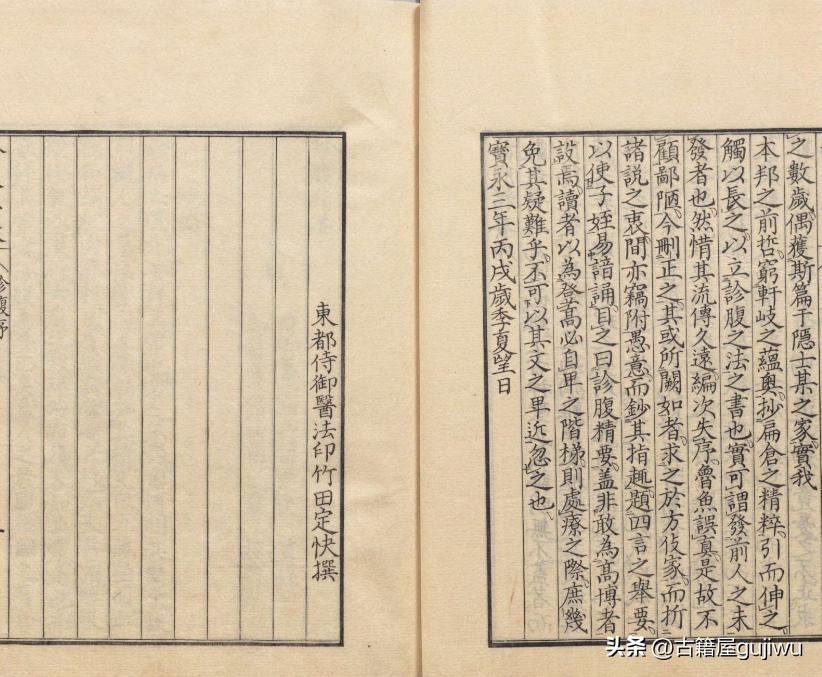 之數歲偶獲斯篇于隱士某之家實我
本邦之前哲窮軒岐之蘊奧抄扁倉之精粹引而伸之
觸以長之以立診腹之法之書也實可謂發前人之未
發者也然惜其流傳久遠編次失序魯魚誤真是故不
顧鄙陋今刪正之其或所闕如者求之於方伎家而折
諸說之衷間亦竊附愚意而鈔其指趣題四言之舉要
以使子姪易諳誦目之曰診腹精要蓋非敢為高博者
設焉讀者以為登高必自卑之階梯則處療之際庶幾
免其疑難乎不可以其文之卑近忽之也
寶永三年丙戌歲季夏望日
東都侍御醫法印竹田定快撰
診腹序
头条 @古籍屋gujiwu